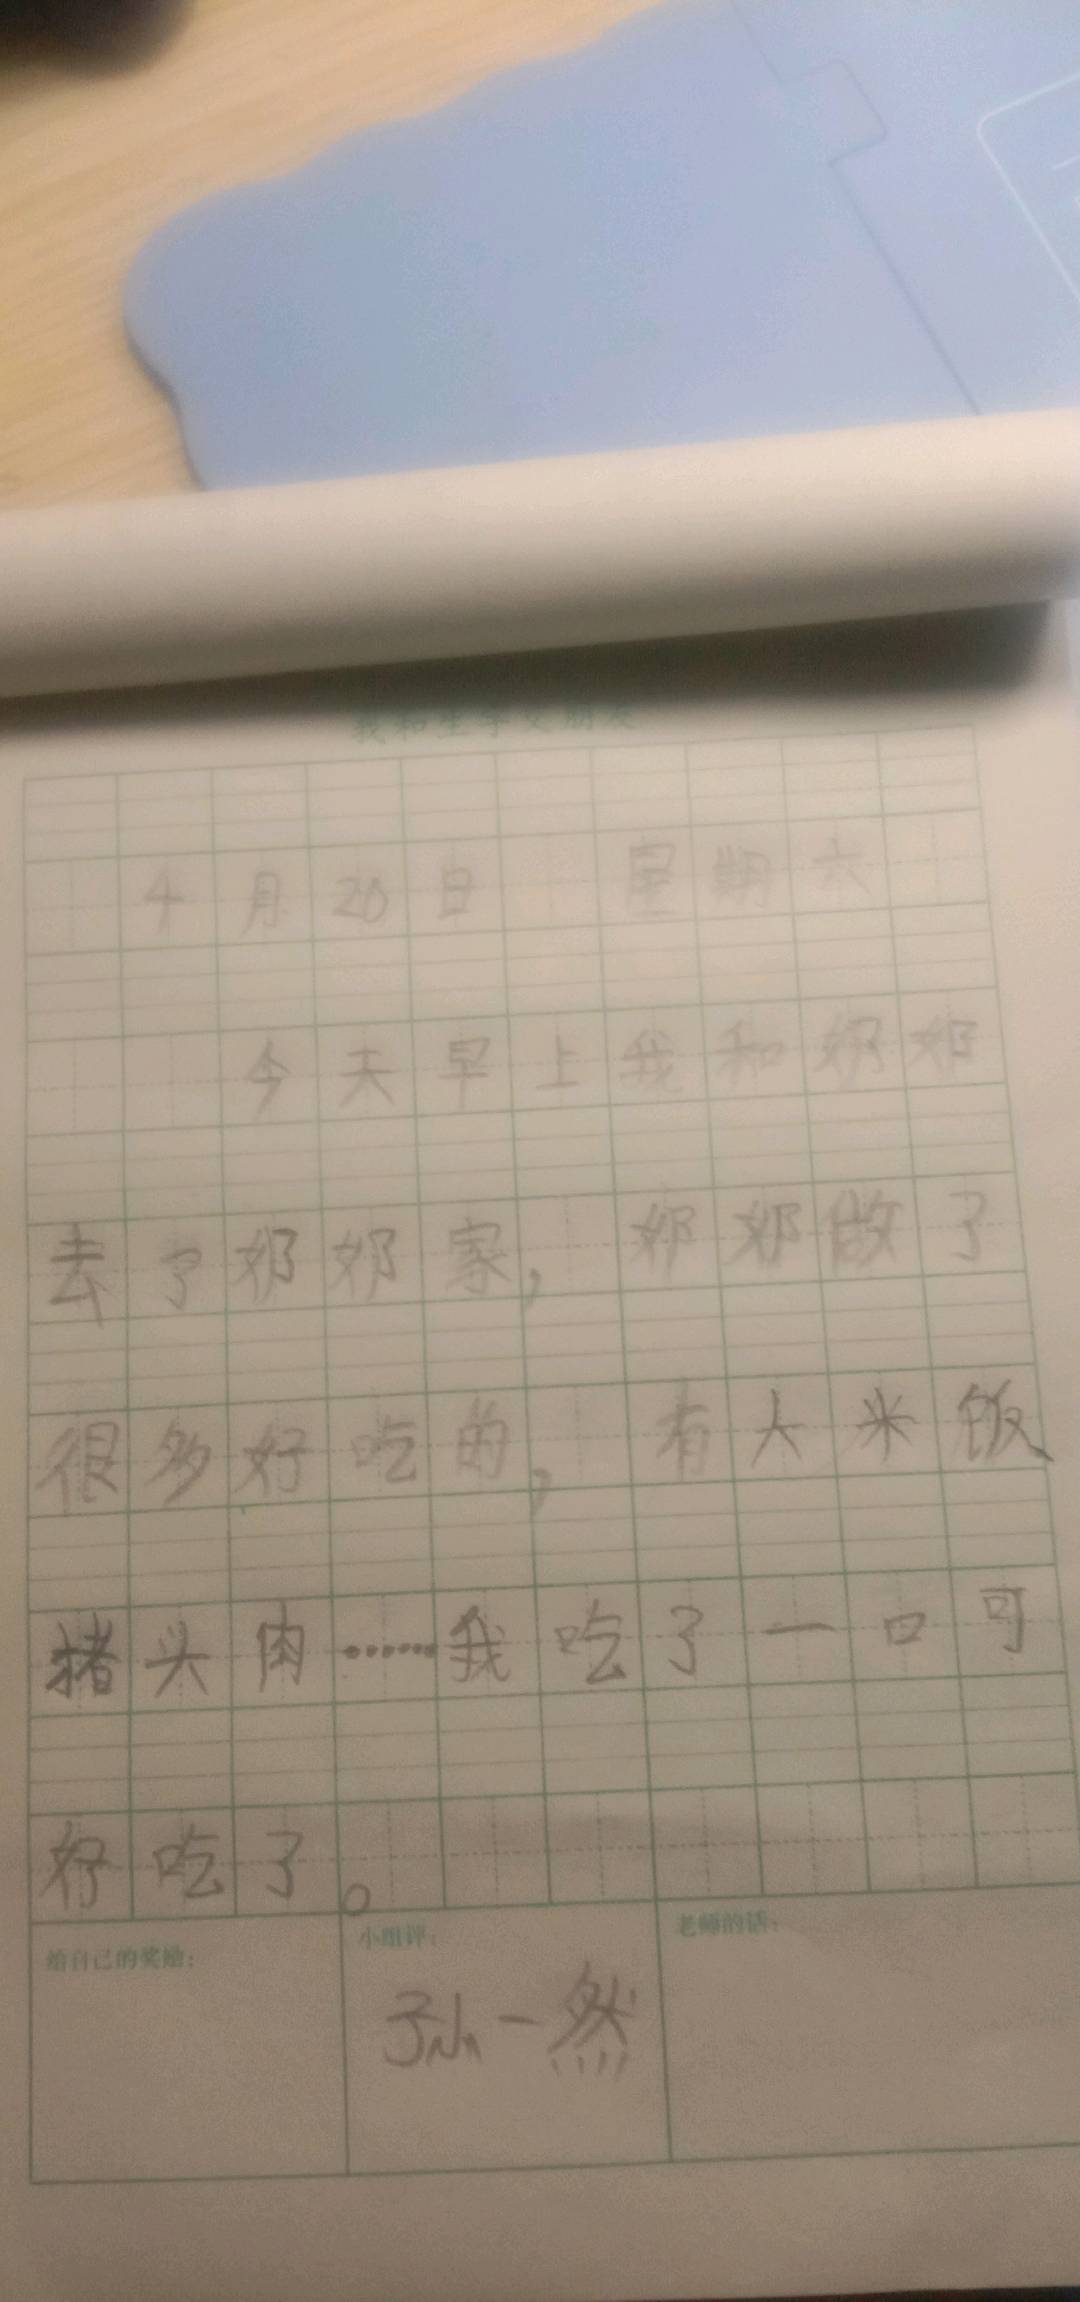 我和生字交朋友
4月20日 星期六
今天早上我和奶奶
去了奶奶家，奶奶做了
很多好吃的，有大米饭
猪头肉……我吃了一口可
好吃了。
给自己的奖励：
小组评：
老师的话：
孙一然